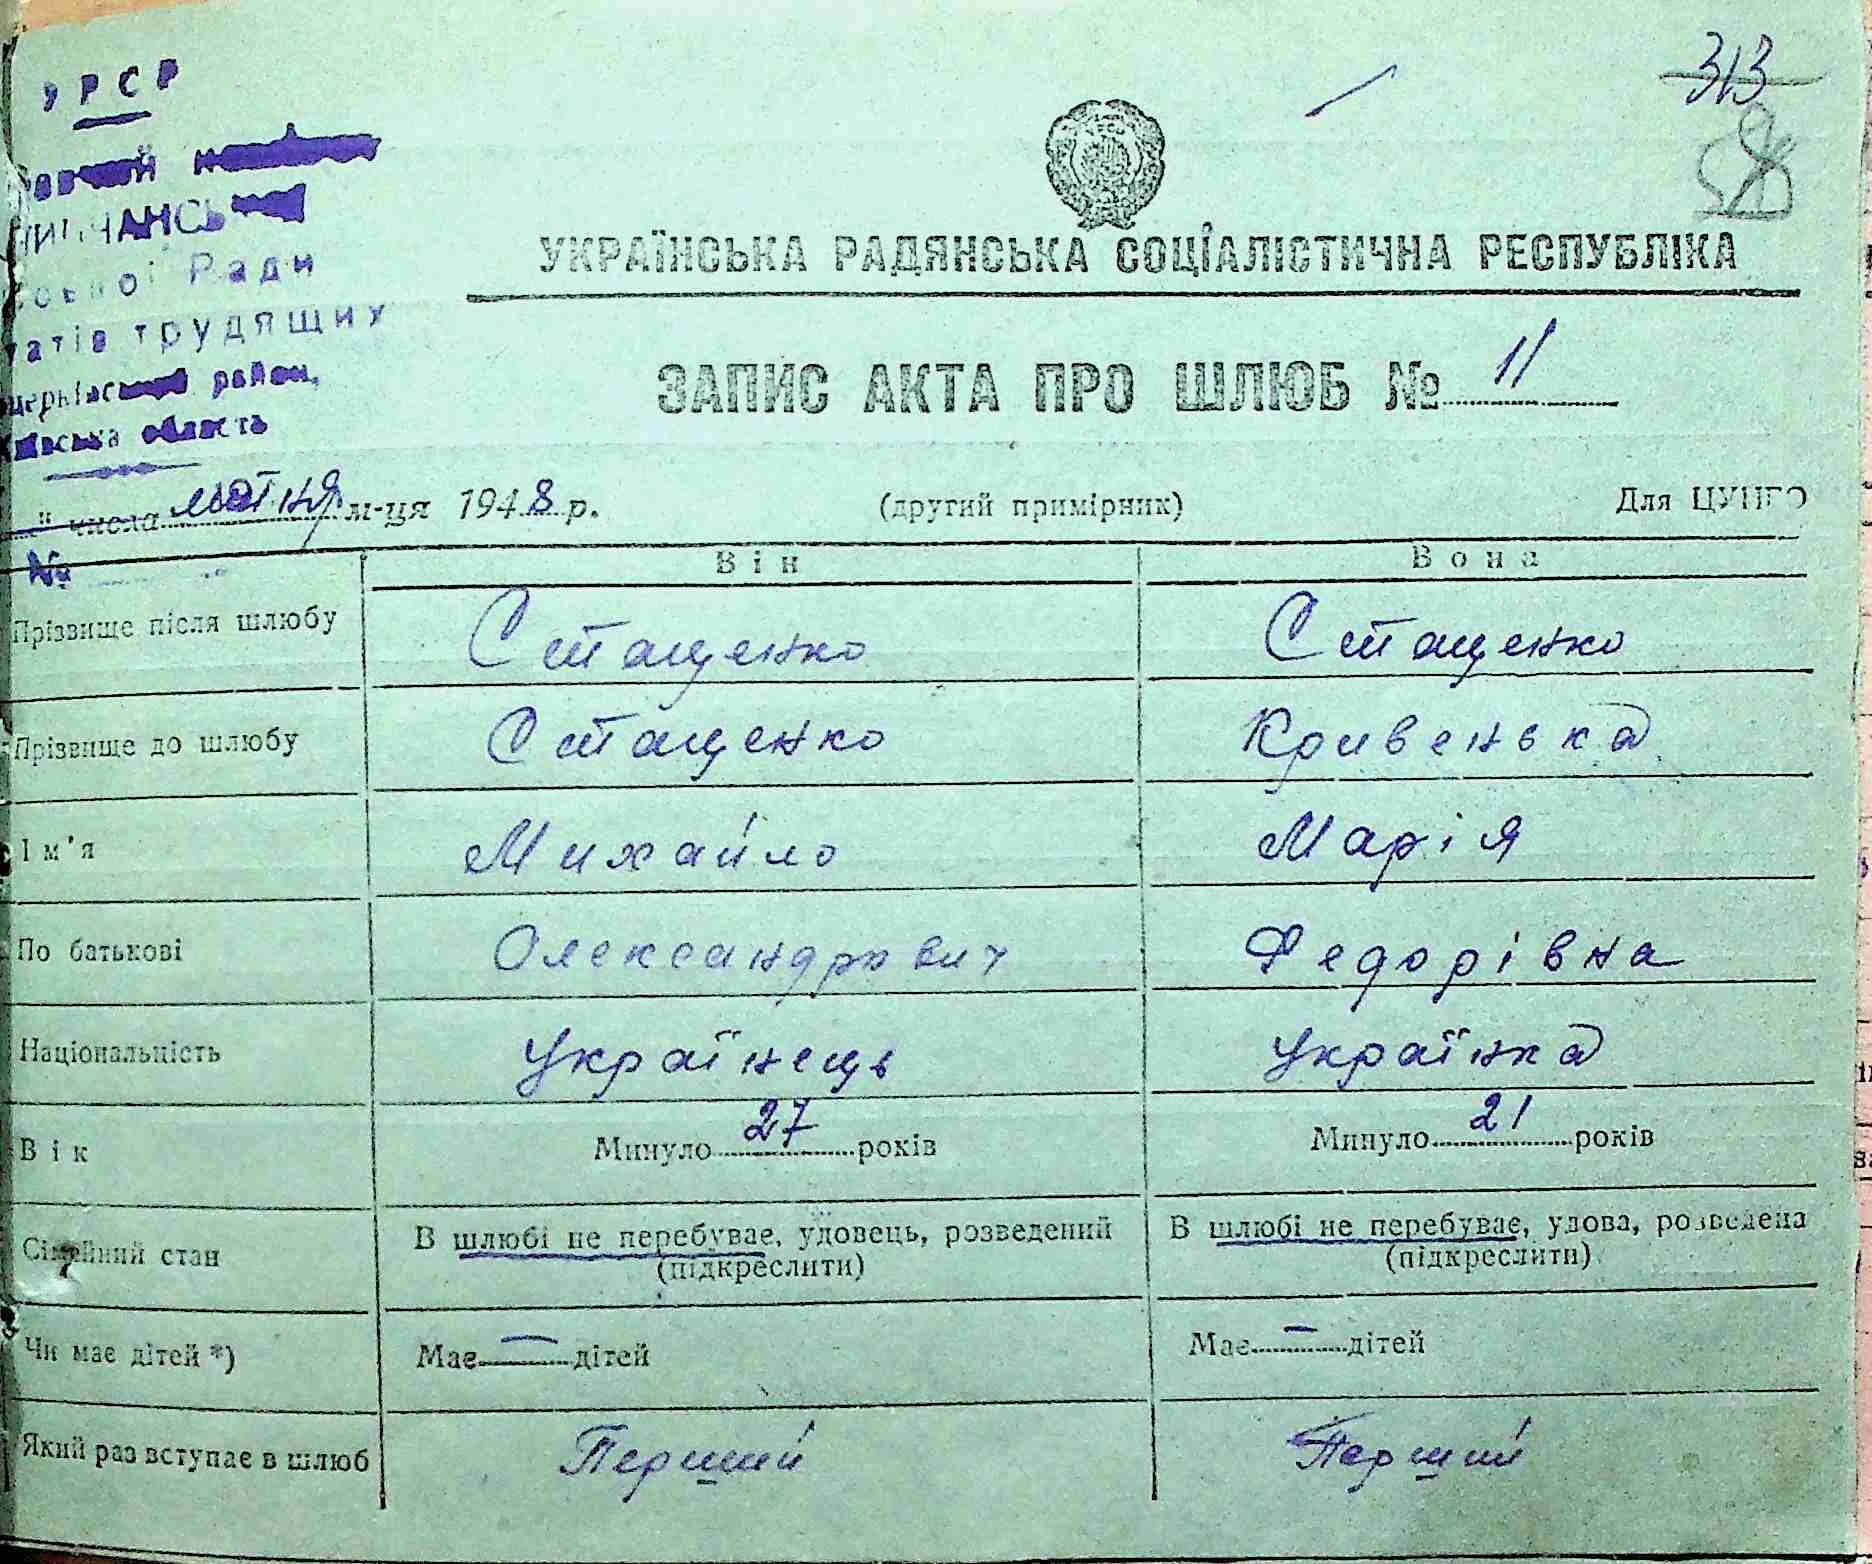 УРСР
313
58
Ради
трудящих
район,
область
УКРАЇНСЬКА РАДЯНСЬКА СОЦІАЛІСТИЧНА РЕСПУБЛІКА
ЗАПИС АКТА ПРО ШЛЮБ № 11
" числа м-ця 1948 р. (другий примірник) Для ЦУНГО
№
Він Вона
Прізвище після шлюбу Стаценко Стаценко
Прізвище до шлюбу Стаценко Кривенька
Ім'я Михайло Марія
По батькові Олександрович Федорівна
Національність Українець Українка
Вік Минуло 27 років Минуло 21 років
Сімейний стан В шлюбі не перебуває, удовець, розведений В шлюбі не перебуває, удова, розведена
(підкреслити) (підкреслити)
Чи має дітей *) Має — дітей Має — дітей
Який раз вступає в шлюб Перший Перший